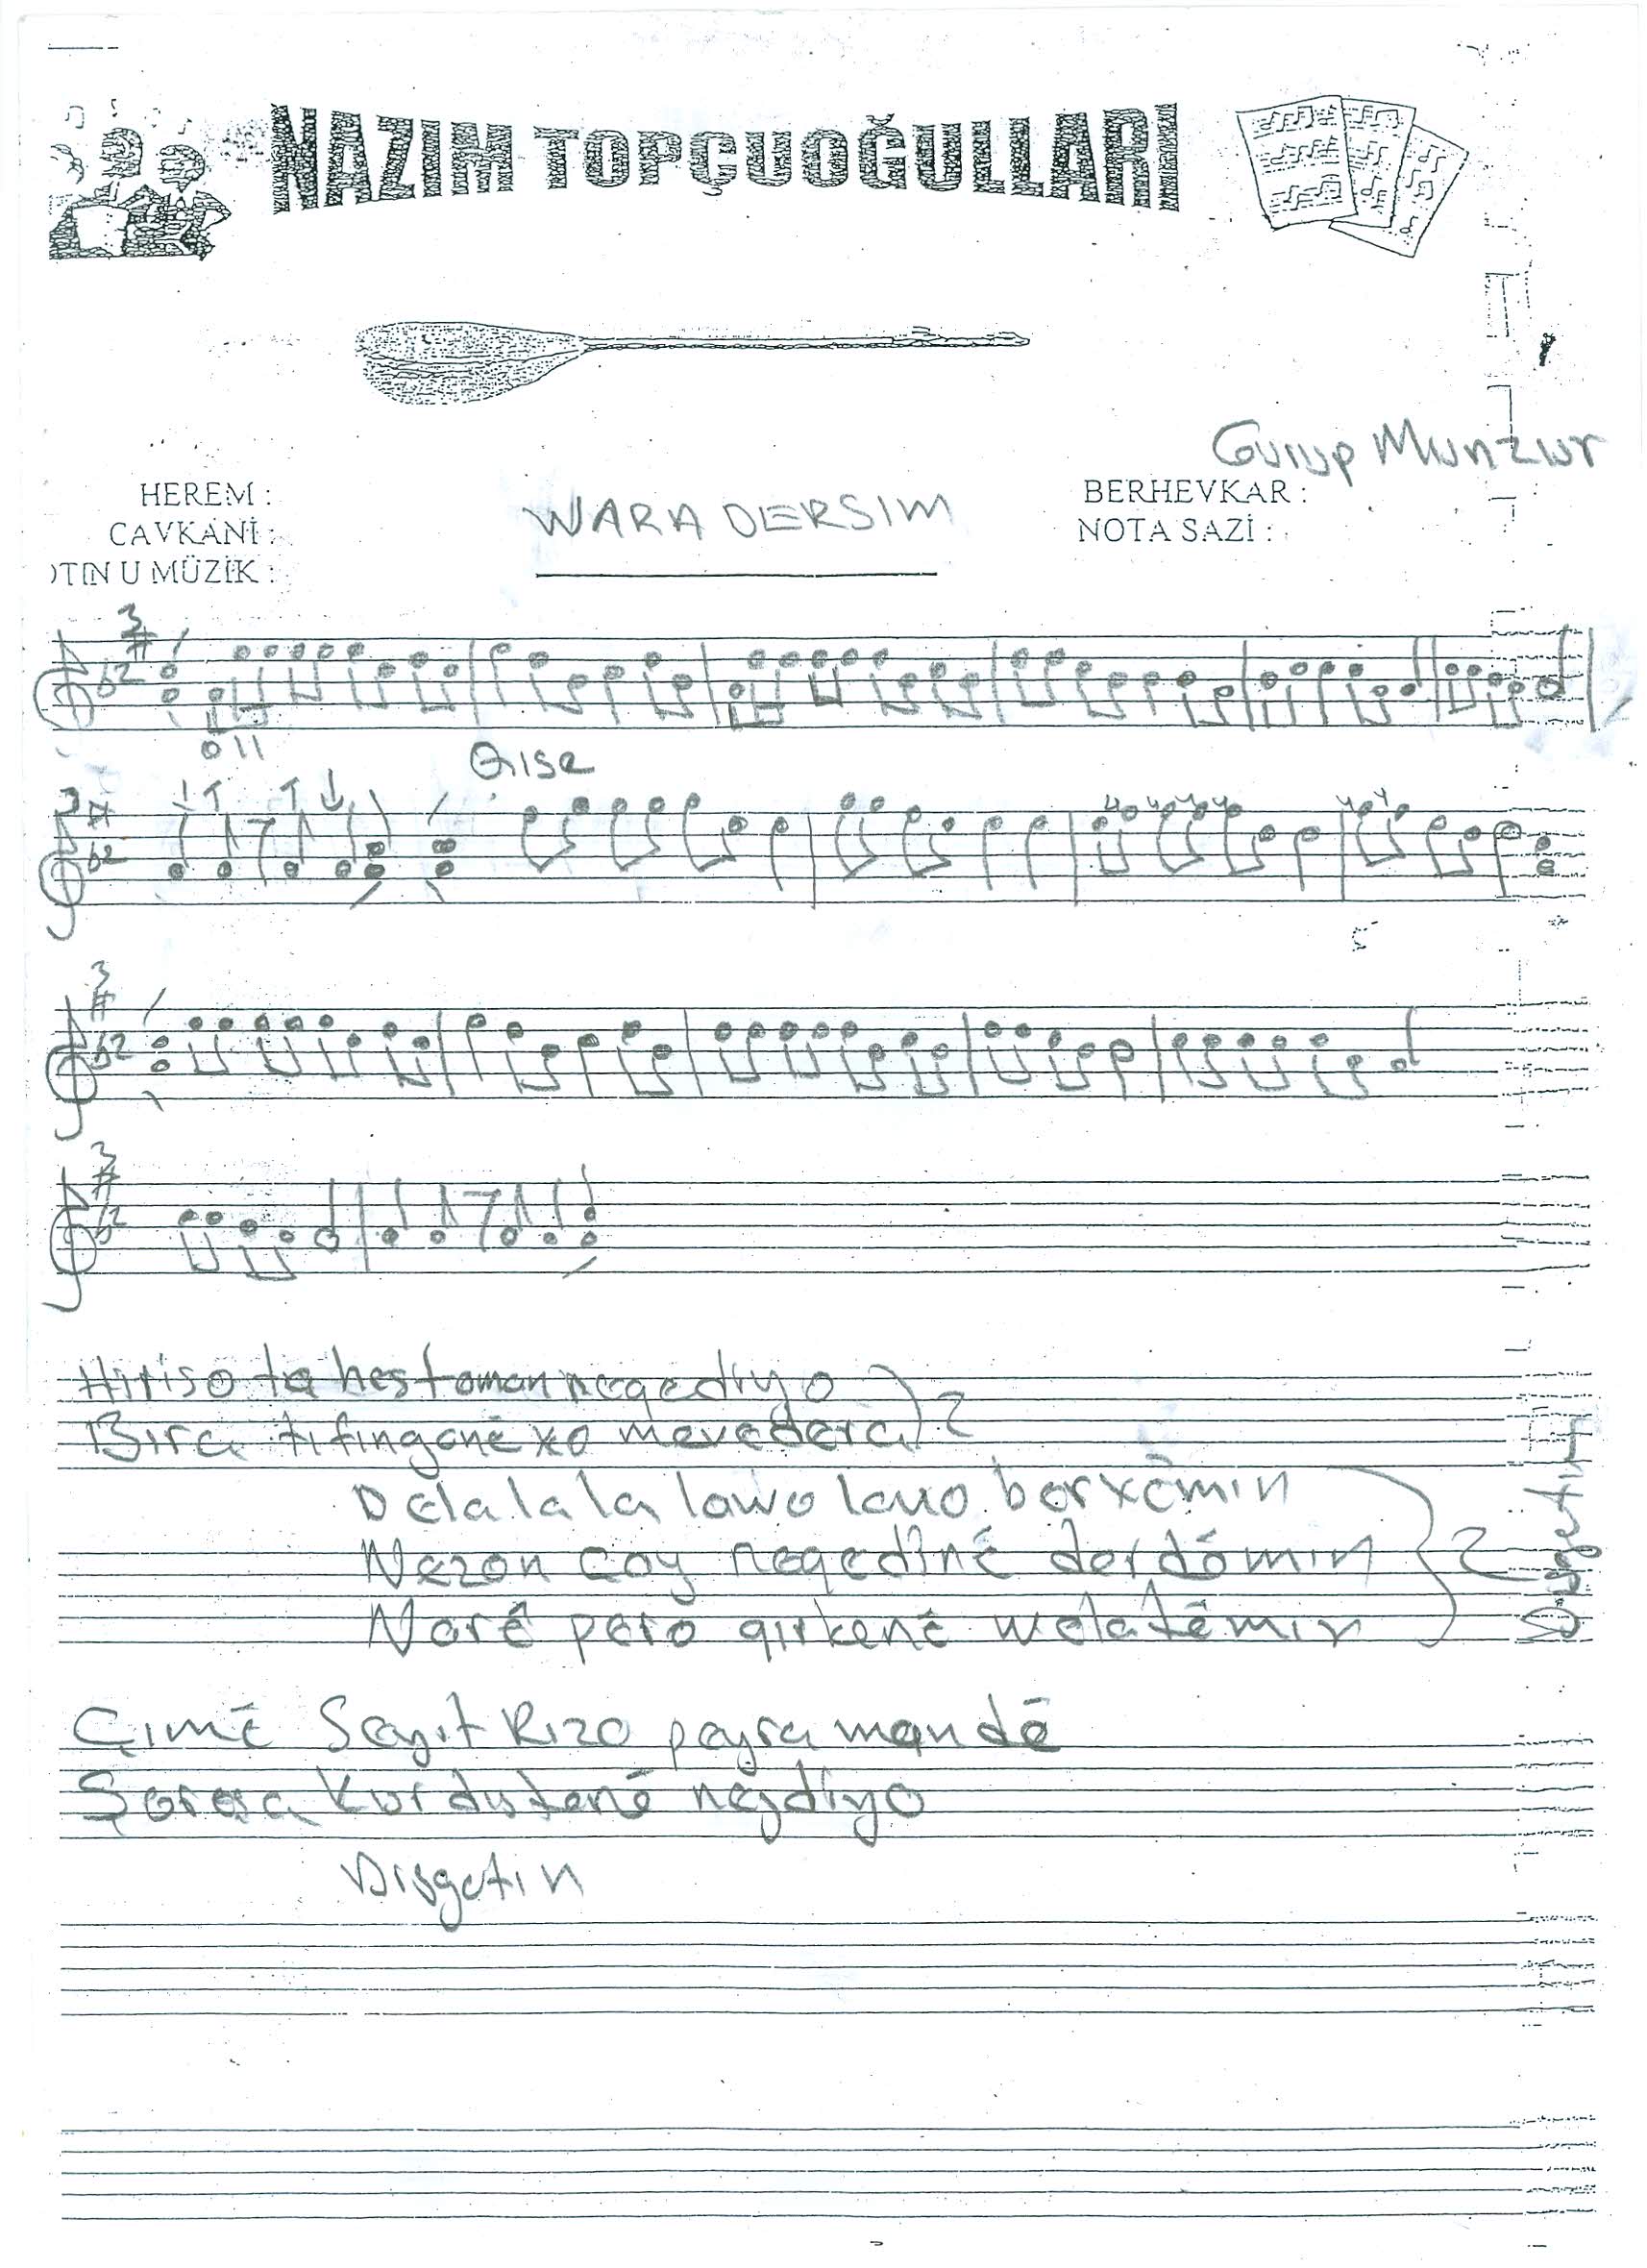 NAZIM TOPÇUOĞULLARI
Gurup Munzur
HEREM :
CAVKANİ :
OTIN U MÜZİK :
WARA DERSIM
BERHEVKAR :
NOTA SAZİ :
Hiriso ta hest oman neqediyo
Bıra tifingonê xo mevedera 2
Delalala lawo lauo berxêmin
Nezon çoy neqedinê derdêmin 2
Norê pero qirkenê welatêmin
Çımê Seyıt Rızo peyra mendê
Şoreşa Kurdıstanê nejdiyo